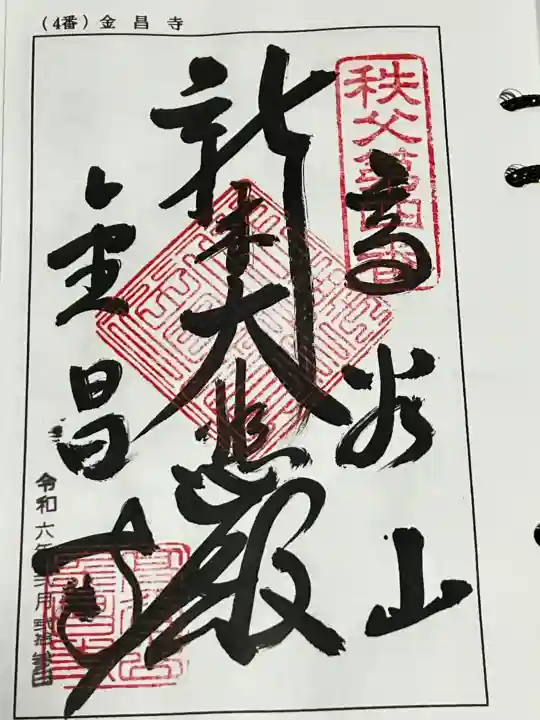 (4番)金昌寺
秩父第四番
高谷山
新木大悲殿
金昌寺
令和六年弐月